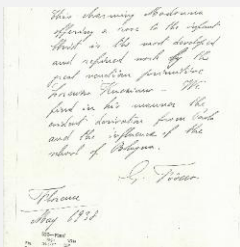 This charming Madonna
offering a rose to the infant
Christ is the most developed
and refined work by the
great venetian primitive
Lorenzo Veneziano - We
find in his manner the
evident derivation from Paolo
and the influence of the
school of Bologna.
G. Fiocco
Florence
May 1938